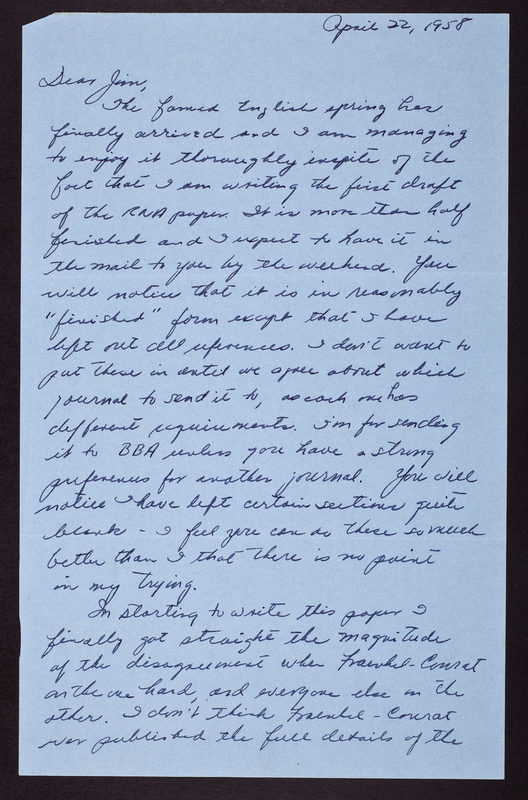 April 22, 1958
Dear Jim,
The famed English spring has
finally arrived and I am managing
to enjoy it thoroughly inspite of the
fact that I am writing the first draft
of the RNA paper. It is more than half
finished and I expect to have it in
the mail to you by the weekend. You
will notice that it is in reasonably
"finished" form except that I have
left out all references. I don't want to
put these in until we agree about which
journal to send it to, as each one has
different requirements. I'm for sending
it to BBA unless you have a strong
preference for another journal. You will
notice I have left certain sections quite
blank - I feel you can do these so much
better than I that there is no point
in my trying.
In starting to write this paper I
finally got straight the magnitude
of the disagreement when Fraenkel-Conrat
on the one hand, and everyone else on the
other. I don't think Fraenkel-Conrat
ever published the full details of the